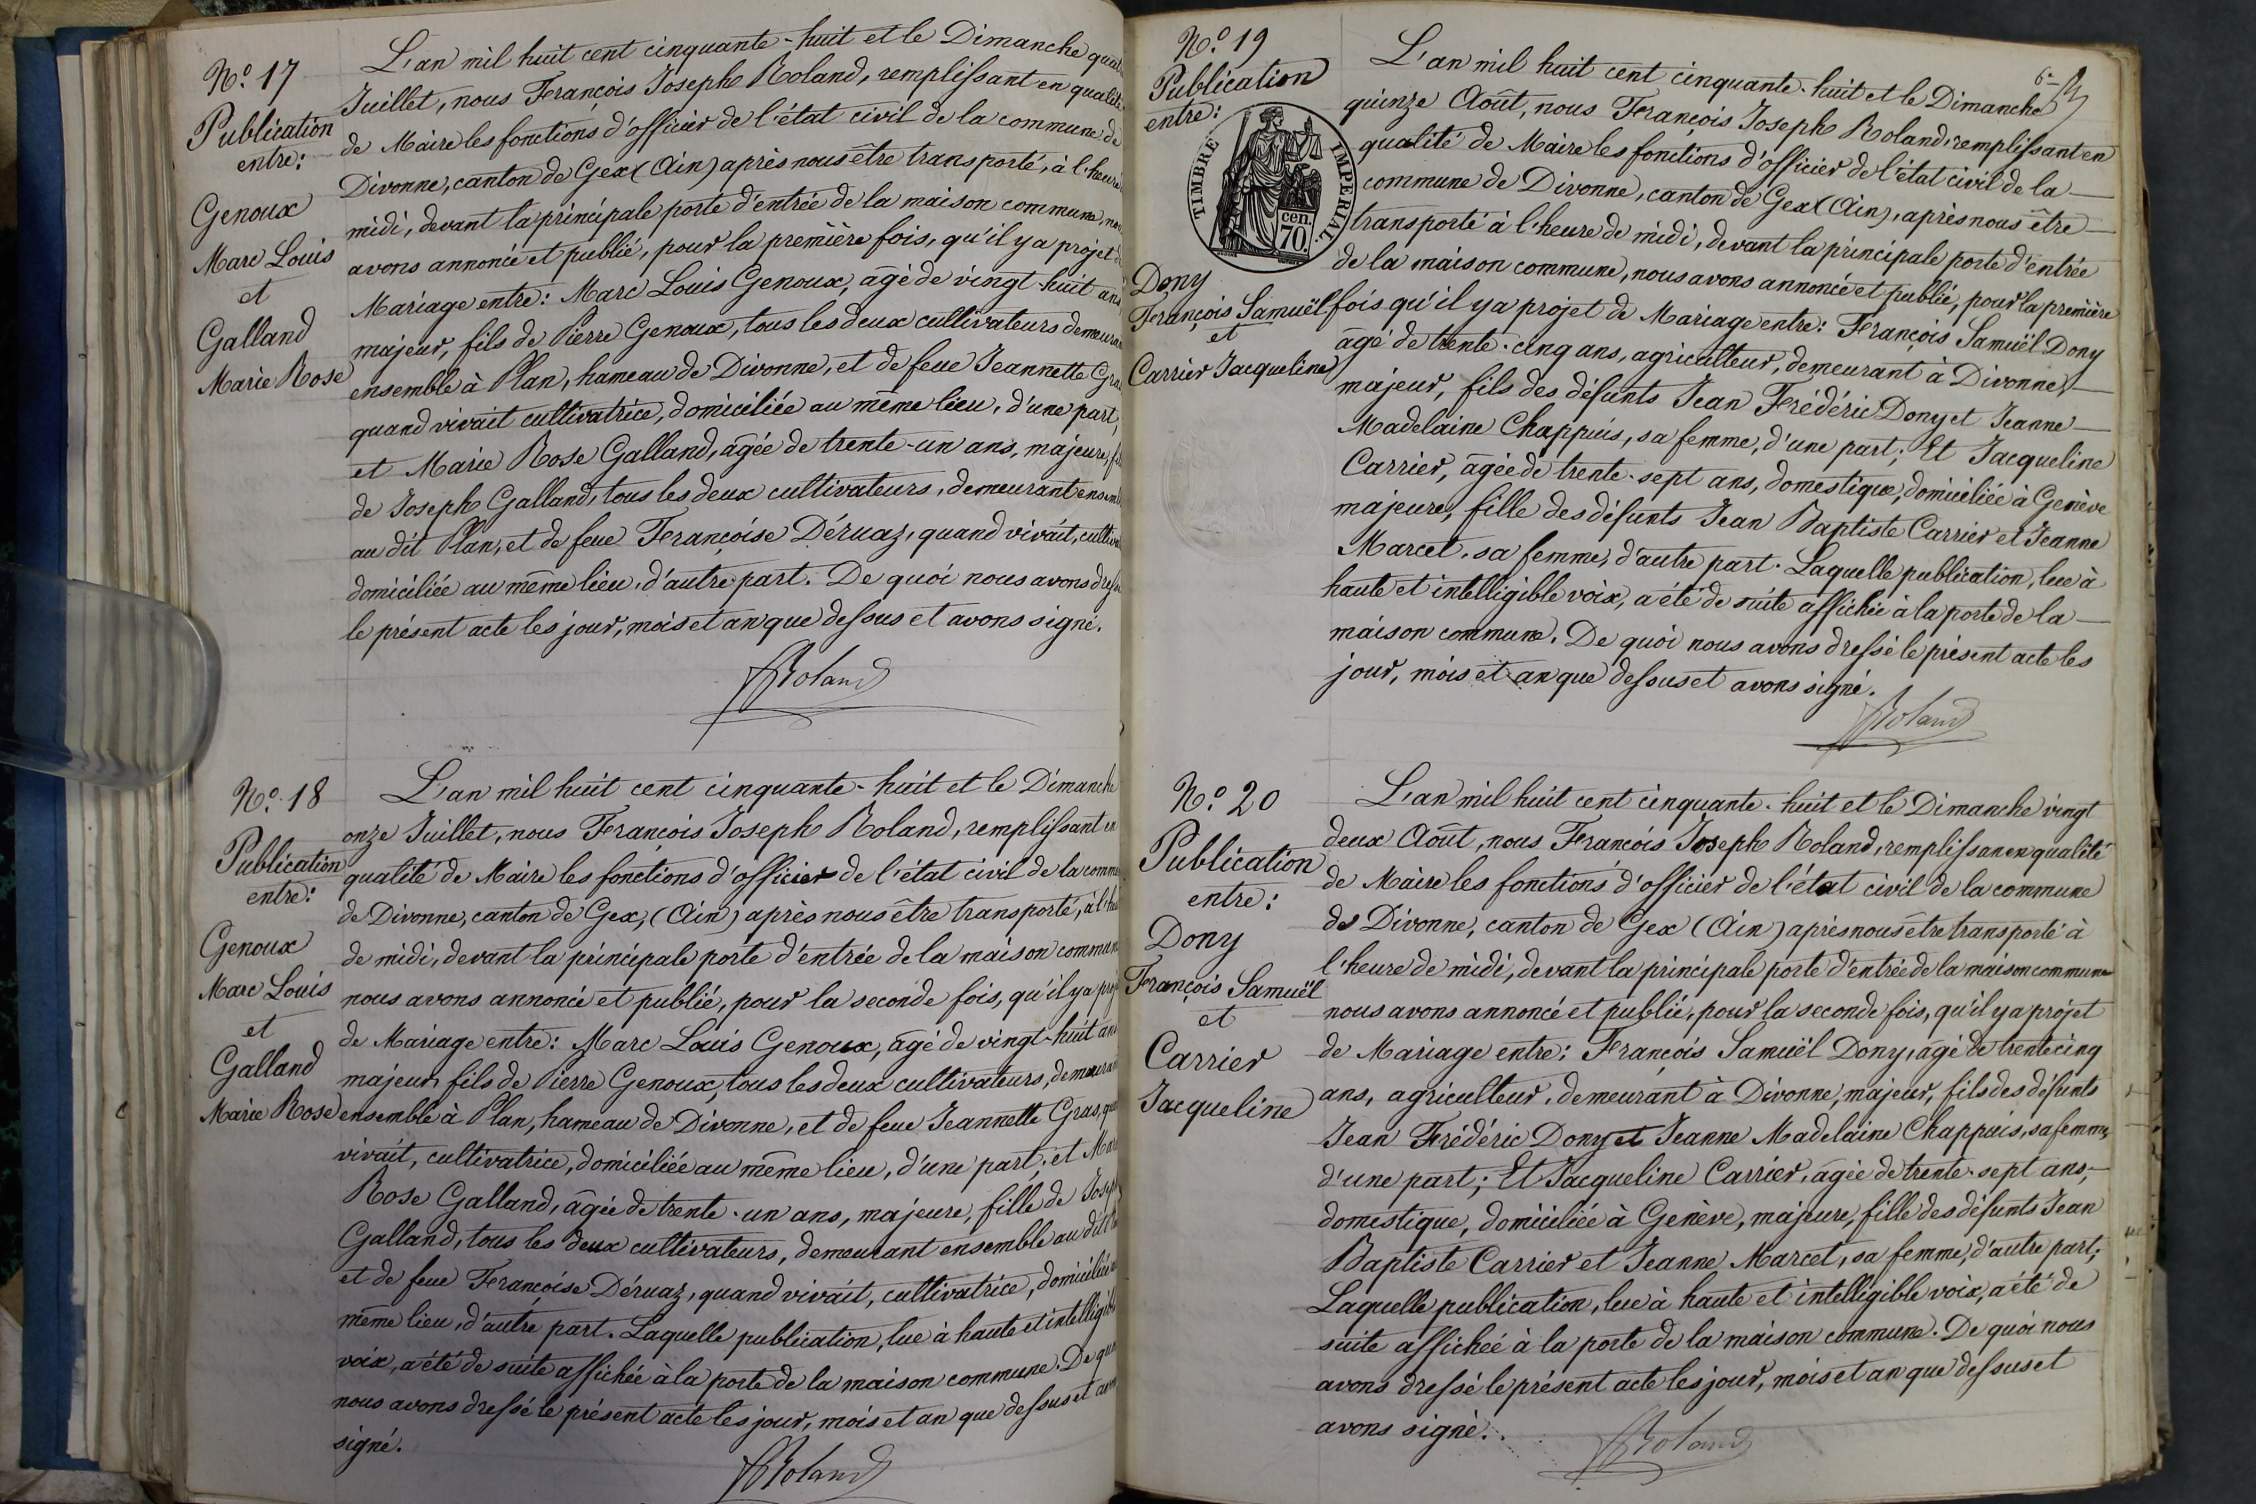 N.° 17
Publication
entre:
Genoux
Marc Louis
et
Galland
Marie Rose
L'an mil huit cent cinquante-huit et le Dimanche
Juillet, nous François Joseph Roland, remplissant en qualité
de Maire les fonctions d'officier de l'état civil de la commune de
Divonne, canton de Gex (Ain) après nous être transporté, à l'heure
midi, devant la principale porte d'entrée de la maison commune,
avons annoncé et publié, pour la première fois, qu'il y a projet
Mariage entre: Marc Louis Genoux, agé de vingt-huit ans
majeur, fils de Pierre Genoux, tous les deux cultivateurs
ensemble à Plan, hameau de Divonne, et de feue Jeannette
quand vivait cultivatrice, domiciliée au même lieu, d'une part,
et Marie Rose Galland, agée de trente-un ans, majeure,
de Joseph Galland, tous les deux cultivateurs, demeurant
au dit Plan, et de feue Françoise Déruaz, quand vivait,
domiciliée au même lieu, d'autre part. De quoi nous avons
le présent acte les jour, mois et an que dessus et avons signé.
Roland
N.° 18
Publication
entre:
Genoux
Marc Louis
et
Galland
Marie Rose
L'an mil huit cent cinquante-huit et le Dimanche
onze Juillet, nous François Joseph Roland, remplissant en
qualité de Maire les fonctions d'officier de l'état civil de la
de Divonne, canton de Gex, (Ain) après nous être transporté,
de midi, devant la principale porte d'entrée de la maison
nous avons annoncé et publié, pour la seconde fois, qu'il y a
de Mariage entre: Marc Louis Genoux, agé de vingt-huit ans
majeur, fils de Pierre Genoux, tous les deux cultivateurs,
ensemble à Plan, hameau de Divonne, et de feue Jeannette Gras,
vivait, cultivatrice, domiciliée au même lieu, d'une part; et
Rose Galland, agée de trente-un ans, majeure, fille de
Galland, tous les deux cultivateurs, demeurant ensemble au dit
et de feue Françoise Déruaz, quand vivait, cultivatrice, domiciliée
même lieu, d'autre part. Laquelle publication, lue à haute et
voix, a été de suite affichée à la porte de la maison commune. De
nous avons dressé le présent acte les jour, mois et an que dessus et
signé.
Roland
N.° 19
Publication
entre:
TIMBRE IMPERIAL
cen.
70.
Dony
François Samuël
et
Carrier Jacqueline
L'an mil huit cent cinquante-huit et le Dimanche
quinze Août, nous François Joseph Roland, remplissant en
qualité de Maire les fonctions d'officier de l'état civil de la
commune de Divonne, canton de Gex (Ain), après nous être
transporté à l'heure de midi, devant la principale porte d'entrée
de la maison commune, nous avons annoncé et publié, pour la première
fois qu'il y a projet de Mariage entre: François Samuël Dony
agé de trente-cinq ans, agriculteur, demeurant à Divonne,
majeur, fils des défunts Jean Frédéric Dony et Jeanne
Madelaine Chappuis, sa femme, d'une part; Et Jacqueline
Carrier, agée de trente-sept ans, domestique, domiciliée à Genève
majeure, fille des défunts Jean Baptiste Carrier et Jeanne
Marcet, sa femme, d'autre part. Laquelle publication, lue à
haute et intelligible voix, a été de suite affichée à la porte de la
maison commune. De quoi nous avons dressé le présent acte les
jour, mois et an que dessus et avons signé.
Roland
N.° 20
Publication
entre:
Dony
François Samuël
et
Carrier
Jacqueline
L'an mil huit cent cinquante-huit et le Dimanche vingt
deux Août, nous François Joseph Roland, remplissan en qualité
de Maire les fonctions d'officier de l'état civil de la commune
de Divonne, canton de Gex (Ain) après nous être transporté à
l'heure de midi, devant la principale porte d'entrée de la maison commune
nous avons annoncé et publié, pour la seconde fois, qu'il y a projet
de Mariage entre: François Samuël Dony, agé de trente cinq
ans, agriculteur, demeurant à Divonne, majeur, fils des défunts
Jean Frédéric Dony et Jeanne Madelaine Chappuis, sa femme,
d'une part; Et Jacqueline Carrier, agée de trente-sept ans,
domestique, domiciliée à Genève, majeure, fille des défunts Jean
Baptiste Carrier et Jeanne Marcet, sa femme, d'autre part;
Laquelle publication, lue à haute et intelligible voix, a été de
suite affichée à la porte de la maison commune. De quoi nous
avons dressé le présent acte les jour, mois et an que dessus et
avons signé.
Roland